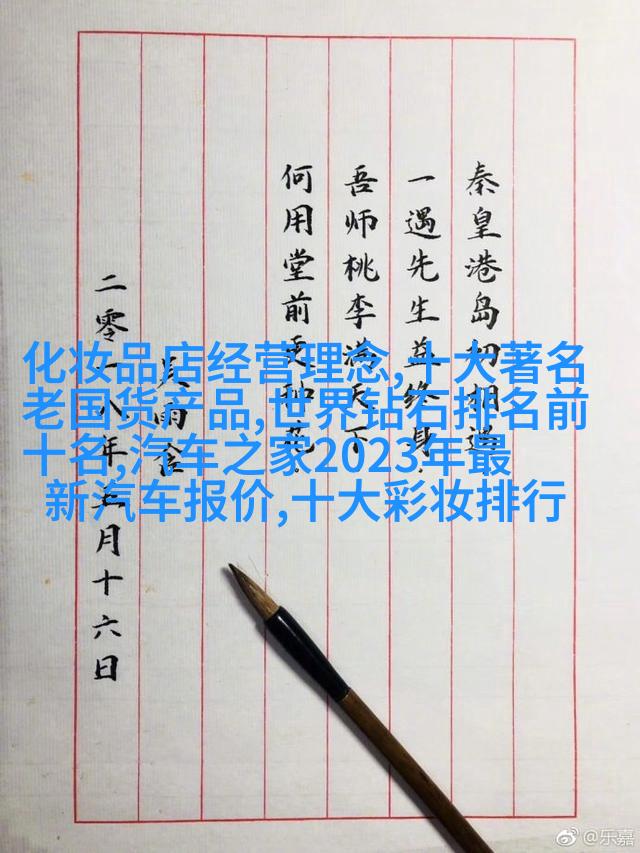 秦皇港岛初相遇
一遇先生益终身
吾师桃李满天下
何用堂前更种花
吴雨
二零一八年五月十六日
化妆品店经营理念,十大著名
老国货产品,世界钻石排名前
十名,汽车之家2023年最
新汽车报价,十大彩妆排行
@乐嘉